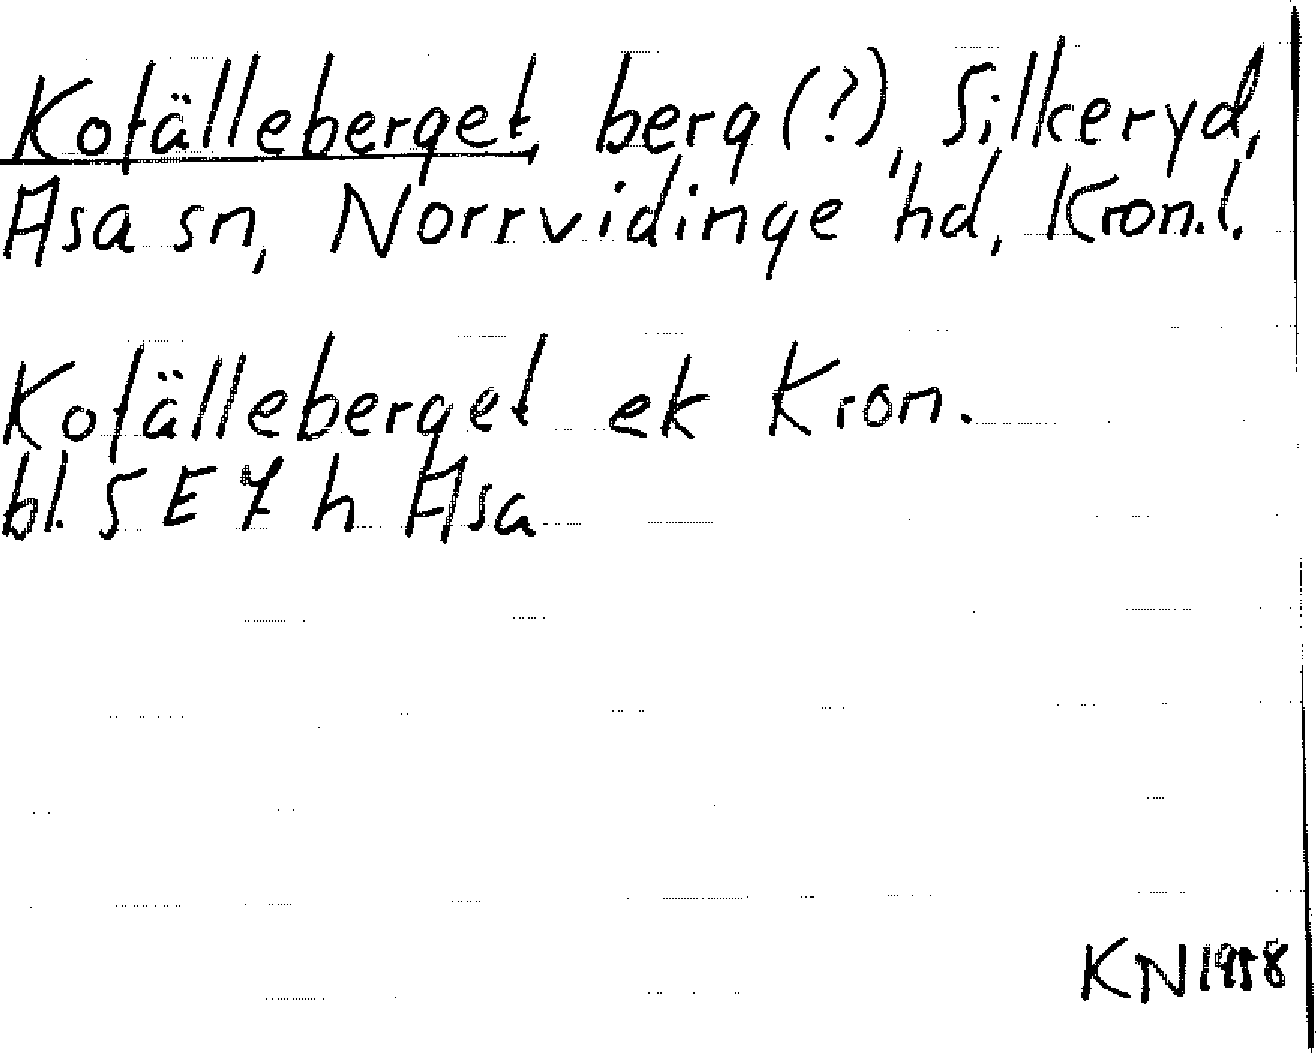 Kofälleberget, berg (?), Silkeryd,
Asa sn, Norrvidinge hd, Kron.l.
Kofälleberget ek Kron.
bl. 5 E 7 h Asa
KN 1958